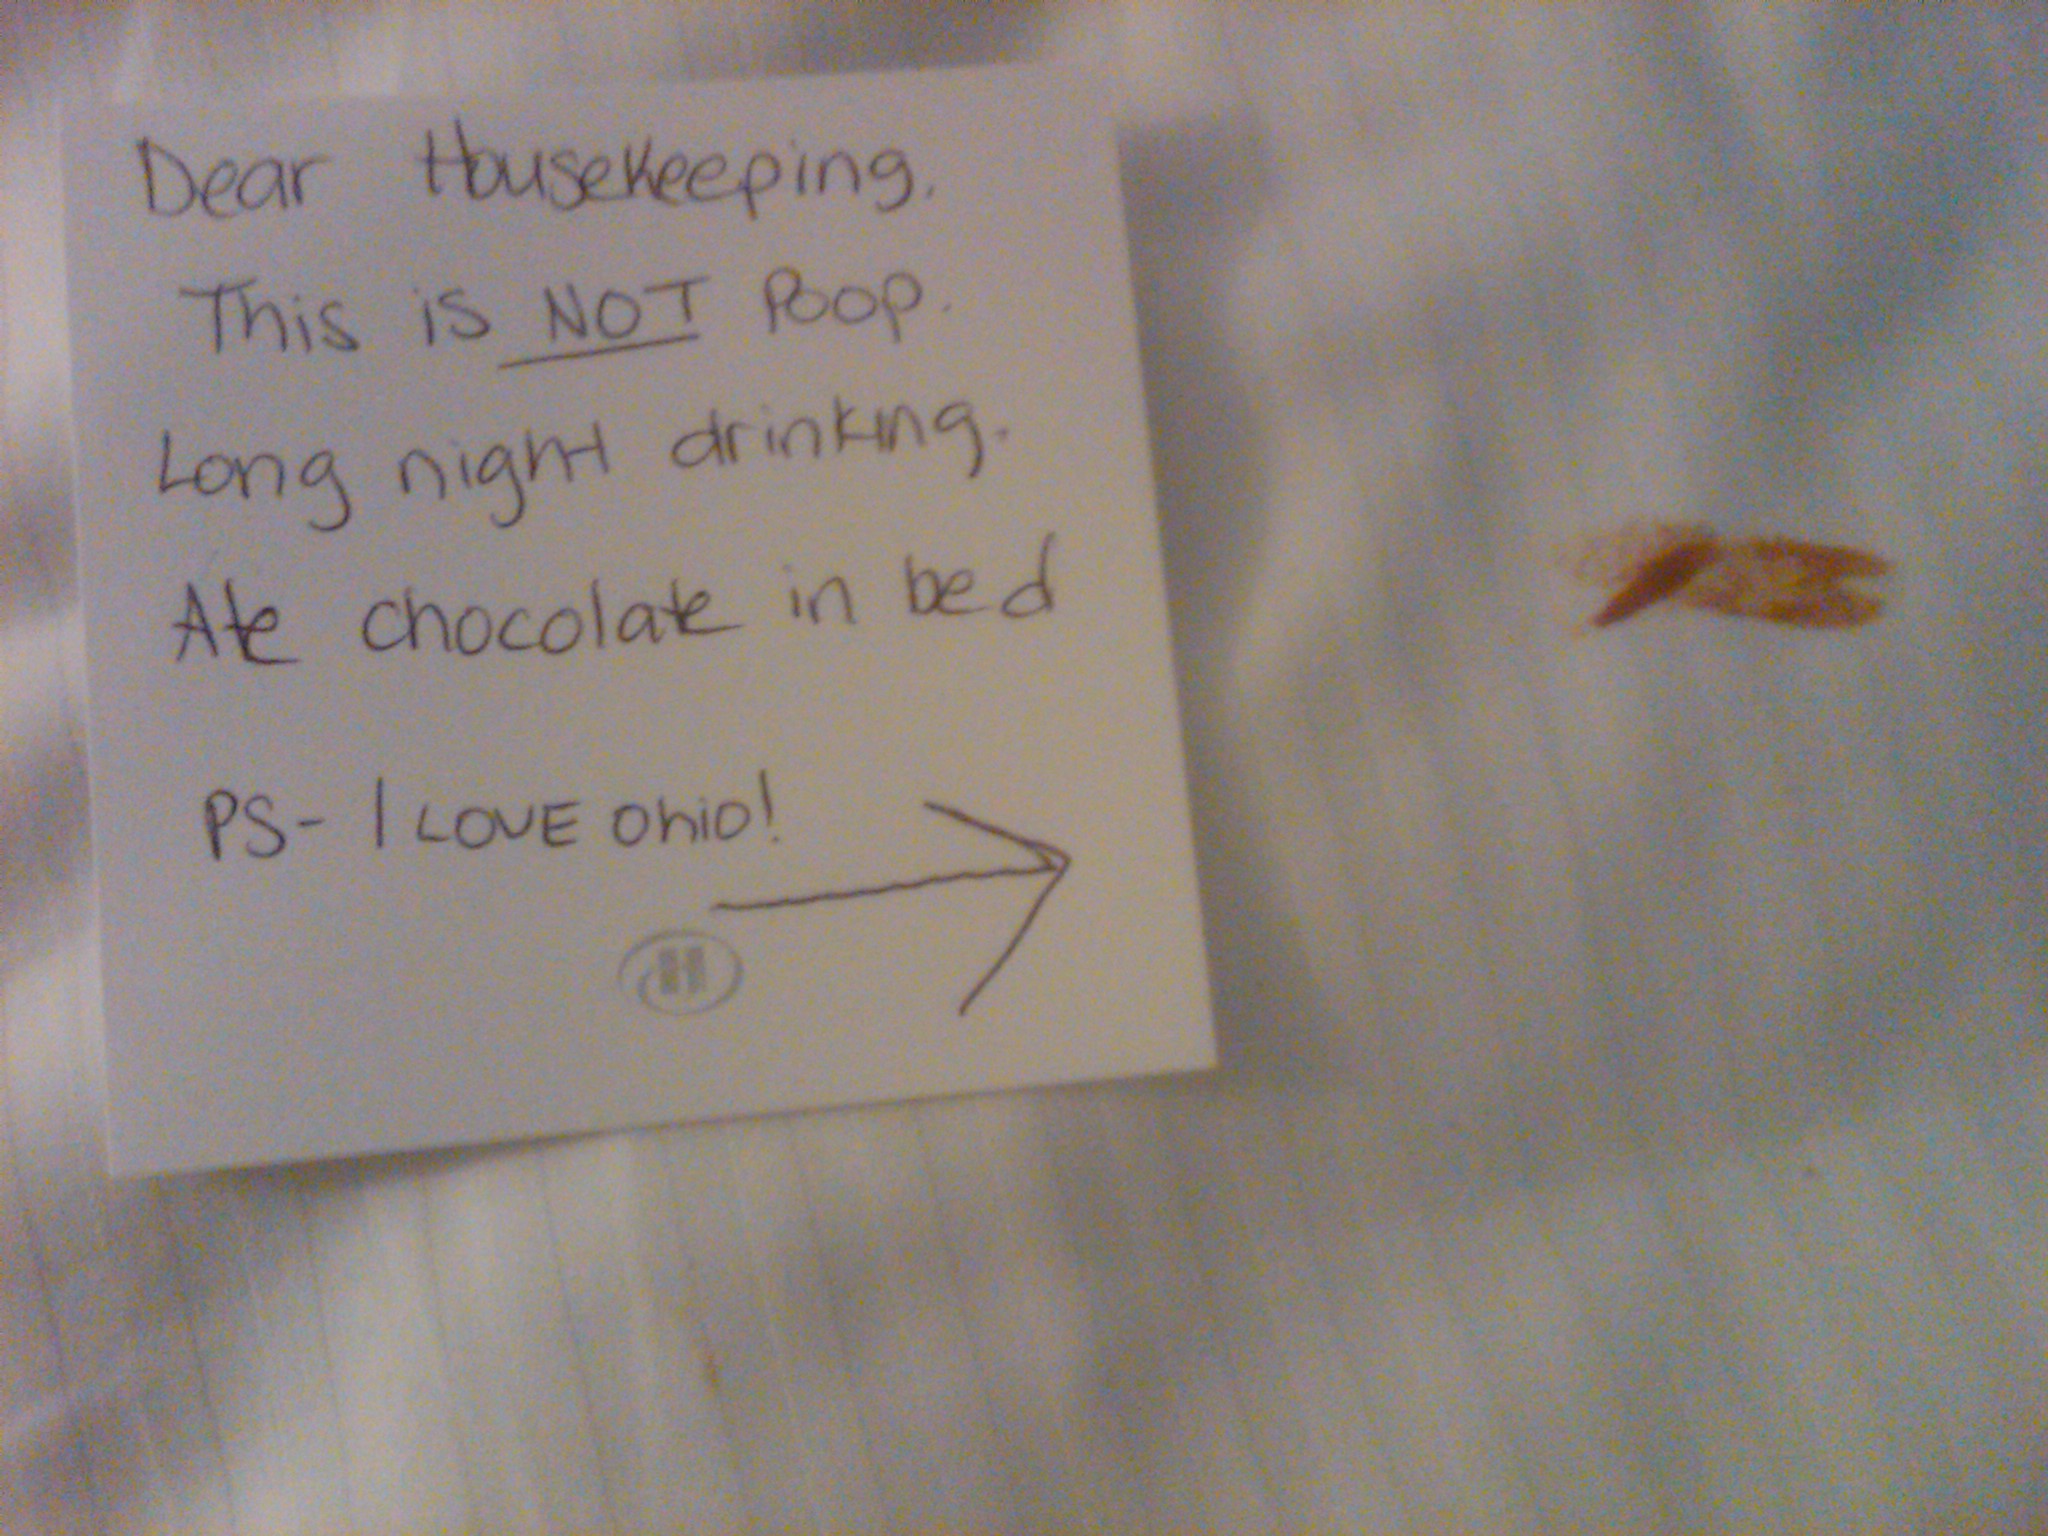 Dear Housekeeping.
This is NOT Poop.
Long night drinking.
Ate chocolate in bed
PS- I LOVE Ohio!
H